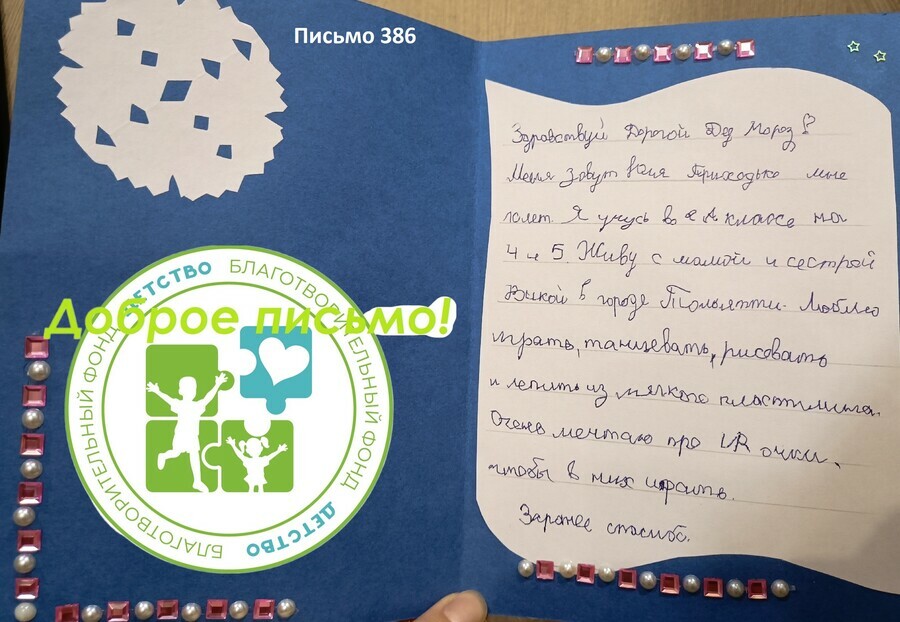 Письмо 386
Доброе письмо!
БЛАГОТВОРИТЕЛЬНЫЙ ФОНД ДЕТСТВО
БЛАГОТВОРИТЕЛЬНЫЙ ФОНД ДЕТСТВО
Здравствуй Дорогой Дед Мороз!
Меня зовут Приходько мне
10 лет. Я учусь во 2 А классе на
4 и 5. Живу с мамой и сестрой
Викой в городе Тольятти. Люблю
играть, танцевать, рисовать
и лепить из мягкого пластилина.
Очень мечтаю про VR очки,
чтобы в них играть.
Заранее спасибо.